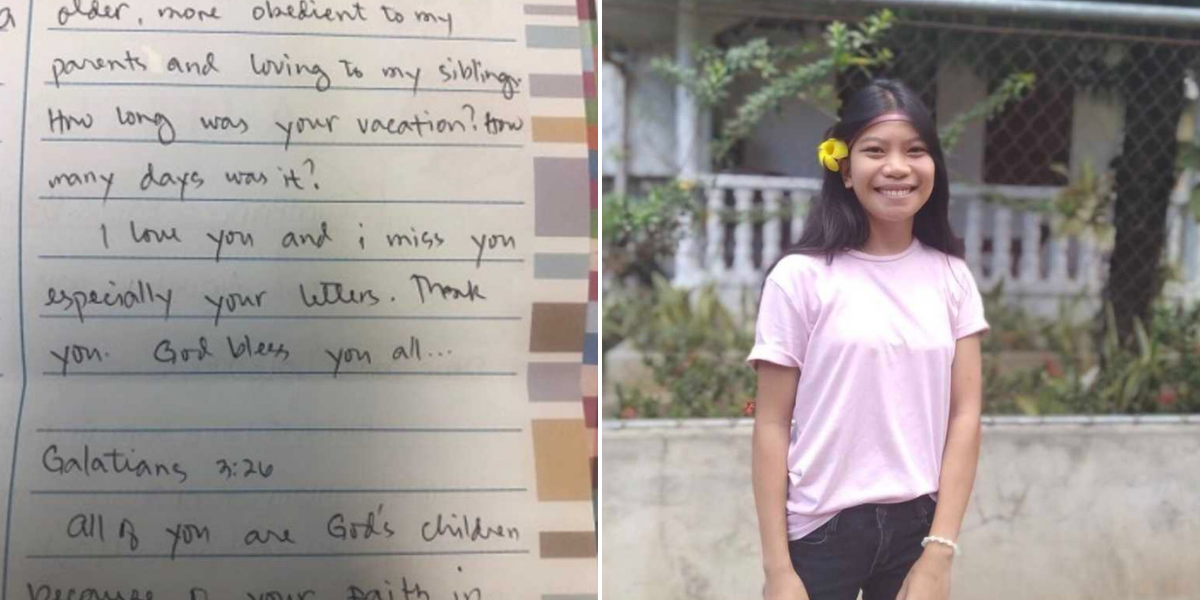 a older, more obedient to my
parents and loving to my siblings.
How long was your vacation? How
many days was it?
I love you and i miss you
especially your letters. Thank
you. God bless you all...
Galatians 3:26
All of you are God's children
because of your faith in